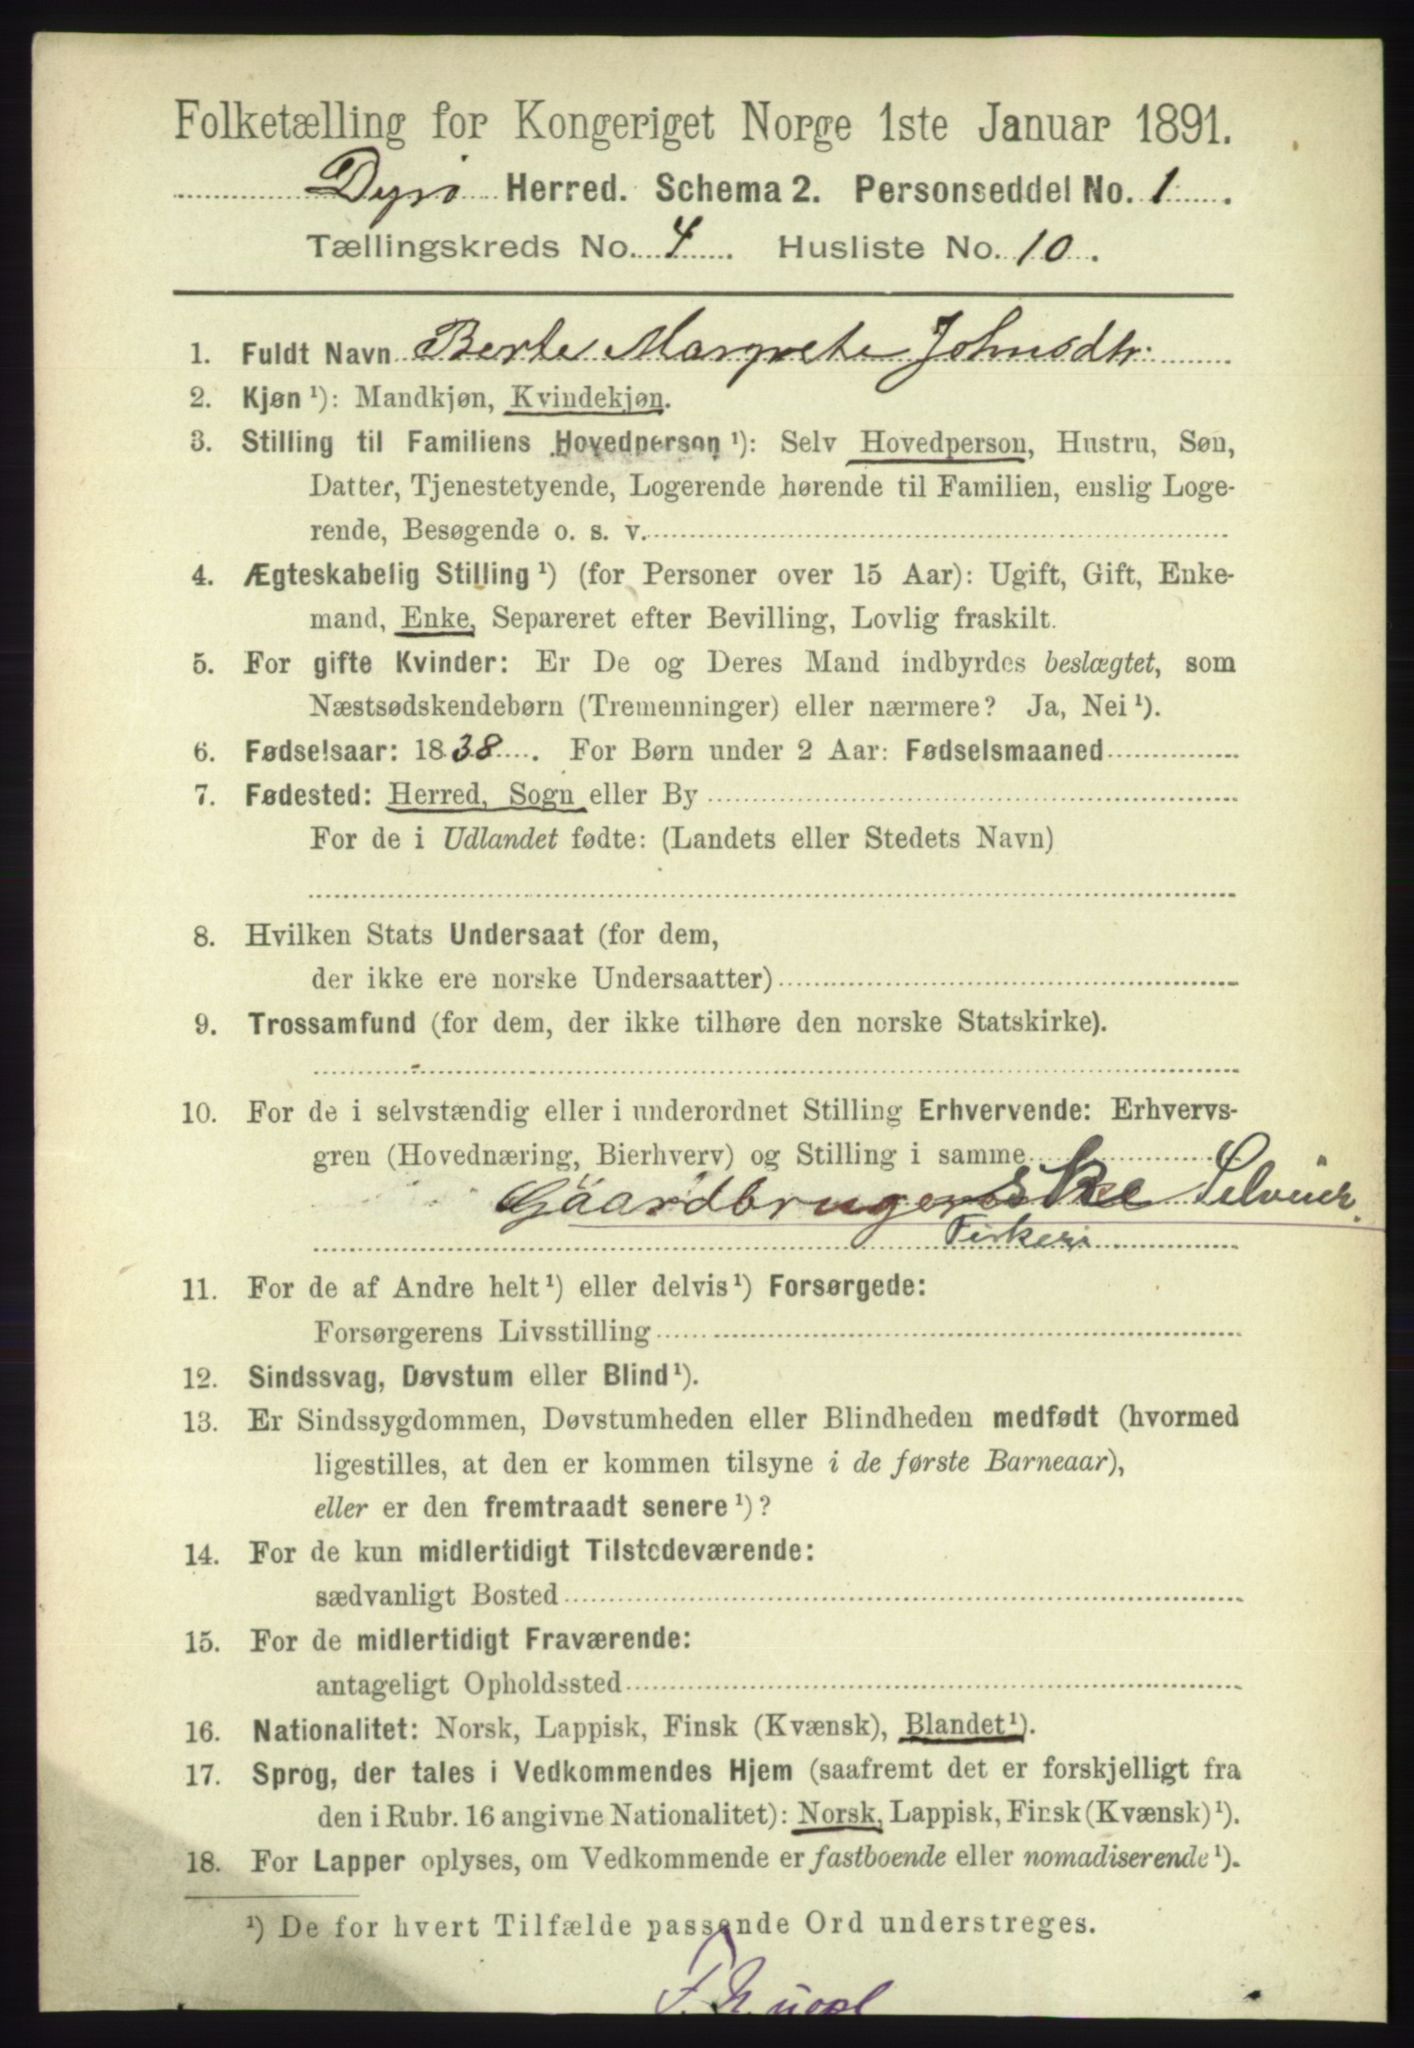 Folketælling for Kongeriget Norge 1ste Januar 1891.
Dyrö Herred. Schema 2. Personseddel No. 1
Tællingskreds No. 4. Husliste No. 10.
1. Fuldt Navn Berte Margrete Johnsdtr.
2. Kjøn ¹): Mandkjøn, Kvindekjøn.
3. Stilling til Familiens Hovedperson ¹): Selv Hovedperson, Hustru, Søn,
Datter, Tjenestetyende, Logerende hørende til Familien, enslig Loge-
rende, Besøgende o. s. v.
4. Ægteskabelig Stilling ¹) (for Personer over 15 Aar): Ugift, Gift, Enke-
mand, Enke, Separeret efter Bevilling, Lovlig fraskilt.
5. For gifte Kvinder: Er De og Deres Mand indbyrdes beslægtet, som
Næstsødskendebørn (Tremenninger) eller nærmere? Ja, Nei ¹).
6. Fødselsaar: 1838. For Børn under 2 Aar: Fødselsmaaned
7. Fødested: Herred, Sogn eller By
For de i Udlandet fødte: (Landets eller Stedets Navn)
8. Hvilken Stats Undersaat (for dem,
der ikke ere norske Undersaatter)
9. Trossamfund (for dem, der ikke tilhøre den norske Statskirke).
10. For de i selvstændig eller i underordnet Stilling Erhvervende: Erhvervs-
gren (Hovednæring, Bierhverv) og Stilling i samme
Gaardbrugerske Selveier
Fisker
11. For de af Andre helt ¹) eller delvis ¹) Forsørgede:
Forsørgerens Livsstilling
12. Sindssvag, Døvstum eller Blind ¹).
13. Er Sindssygdommen, Døvstumheden eller Blindheden medfødt (hvormed
ligestilles, at den er kommen tilsyne i de første Barneaar),
eller er den fremtraadt senere ¹)?
14. For de kun midlertidigt Tilstedeværende:
sædvanligt Bosted
15. For de midlertidigt Fraværende:
antageligt Opholdssted
16. Nationalitet: Norsk, Lappisk, Finsk (Kvænsk), Blandet ¹).
17. Sprog, der tales i Vedkommendes Hjem (saafremt det er forskjelligt fra
den i Rubr. 16 angivne Nationalitet): Norsk, Lappisk, Finsk (Kvænsk) ¹).
18. For Lapper oplyses, om Vedkommende er fastboende eller nomadiserende ¹).
¹) De for hvert Tilfælde passende Ord understreges.